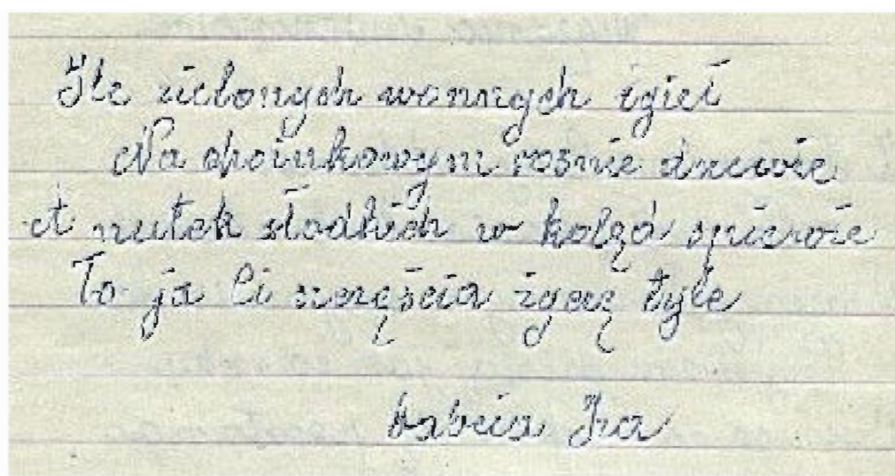 Ile zielonych wonnych igieł
Na choinkowym rośnie drzewie
A nutek słodkich w kolęd śpiewie
To ja Ci szczęścia życzę tyle
Babcia Iza